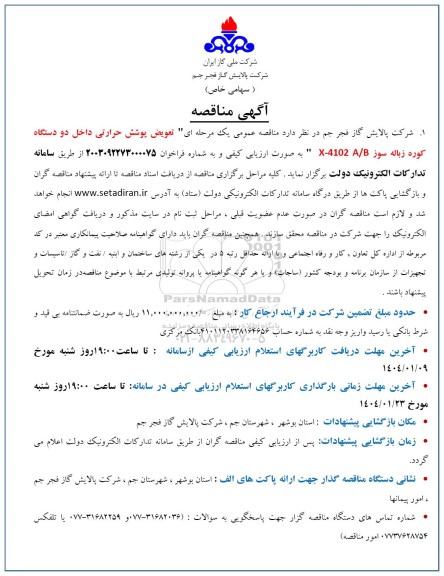 شرکت ملی گاز ایران
شرکت پالایش گاز فجر جم
( سهامی خاص)
آگهی مناقصه
۱. شرکت پالایش گاز فجر جم در نظر دارد مناقصه عمومی یک مرحله ای" تعویض پوشش حرارتی داخل دو دستگاه
کوره زباله سوز X-4102 A/B " به صورت ارزیابی کیفی و به شماره فراخوان ۲۰۰۳۰۹۲۲۷۳۰۰۰۰۷۵ از طریق سامانه
تدارکات الکترونیک دولت برگزار نماید . کلیه مراحل برگزاری مناقصه از دریافت اسناد مناقصه تا ارائه پیشنهاد مناقصه گران
و بازگشایی پاکت ها از طریق درگاه سامانه تدارکات الکترونیکی دولت (ستاد) به آدرس www.setadiran.ir انجام خواهد
شد و لازم است مناقصه گران در صورت عدم عضویت قبلی ، مراحل ثبت نام در سایت مذکور و دریافت گواهی امضای
الکترونیک را جهت شرکت در مناقصه محقق سازند . همچنین مناقصه گران باید دارای گواهینامه صلاحیت پیمانکاری معتبر در کد
مربوطه از اداره کل تعاون ، کار و رفاه اجتماعی و با ارائه حداقل رتبه ۵ در یکی از رشته های ساختمان و ابنیه / نفت و گاز /تاسیسات و
تجهیزات از سازمان برنامه و بودجه کشور (ساجات) و یا هر گونه گواهینامه یا پروانه تولیدی مرتبط با موضوع مناقصه در زمان تحویل
پیشنهاد باشند .
• حدود مبلغ تضمین شرکت در فرآیند ارجاع کار : به مبلغ ۱۱,۰۰۰,۰۰۰,۰۰۰/- ریال به صورت ضمانتنامه بی قید و
شرط بانکی یا رسید واریز وجه نقد به شماره حساب بانک مرکزی
• آخرین مهلت دریافت کاربرگهای استعلام ارزیابی کیفی ازسامانه : تا ساعت ۱۹:۰۰روز شنبه مورخ
۱۴۰۴/۰۱/۰۹
• آخرین مهلت زمانی بارگذاری کاربرگهای استعلام ارزیابی کیفی در سامانه: تا ساعت ۱۹:۰۰روز شنبه
مورخ ۱۴۰۴/۰۱/۲۳
• مکان بازگشایی پیشنهادات : استان بوشهر ، شهرستان جم ، شرکت پالایش گاز فجر جم
• زمان بازگشایی پیشنهادات: پس از ارزیابی کیفی مناقصه گران از طریق سامانه تدارکات الکترونیک دولت اعلام می
گردد.
• نشانی دستگاه مناقصه گذار جهت ارائه پاکت های الف : استان بوشهر ، شهرستان جم ، شرکت پالایش گاز فجر جم
، امور پیمانها
• شماره تماس های دستگاه مناقصه گزار جهت پاسخگویی به سوالات : (۳۱۶۸۲۰۳۶-۰۷۷ و ۳۱۶۸۲۲۵۹-۰۷۷ یا تلفکس
۰۷۷۳۷۶۲۸۷۵۴ امور مناقصه)
ParsNamadData
۰۲۱-۸۸۳۴۹۶۷۰-۵